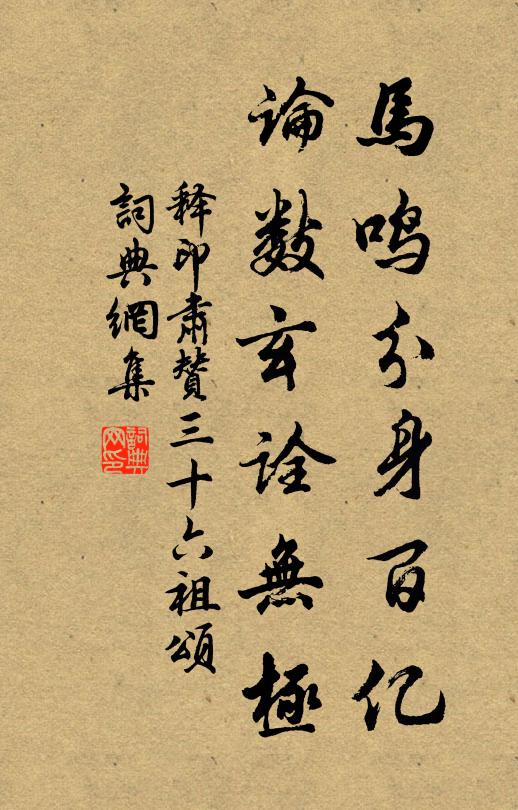 馬鸣分身百亿
論数玄詮無極
释印肃贊三十六祖頌
詞典網集
詞典网印